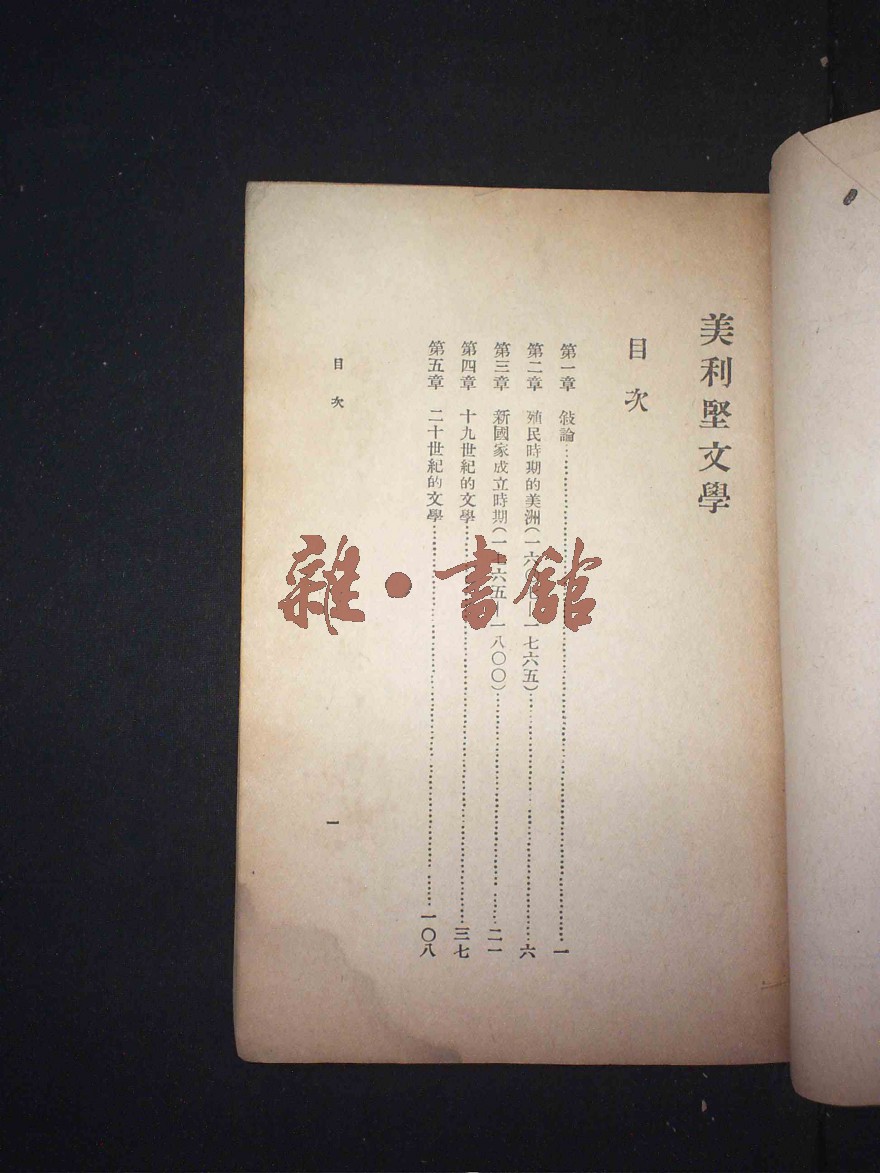 美利堅文學
目次
第一章 敍論……一
第二章 殖民時期的美洲(一六〇七—一七六五)……六
第三章 新國家成立時期(一七六五—一八〇〇)……二一
第四章 十九世紀的文學……三七
第五章 二十世紀的文學……一〇八
目次
一
雜·書館